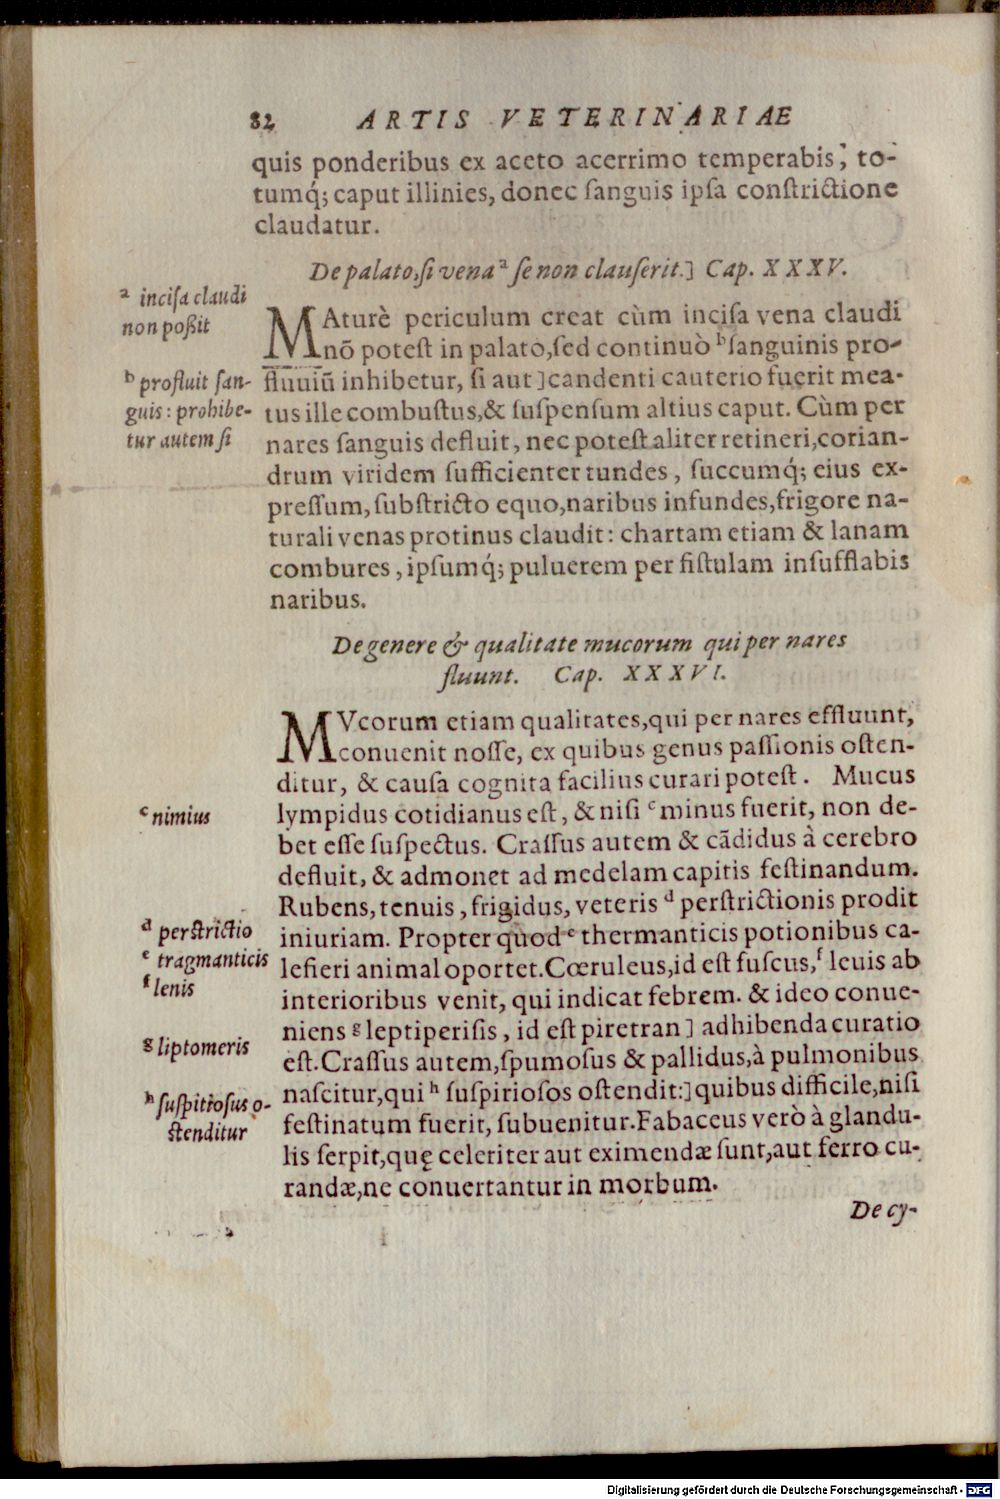 82 ARTIS VETERINARIAE
quis ponderibus ex aceto acerrimo temperabis, to-
tumq́; caput illinies, donec ſanguis ipſa conſtrictione
claudatur.
De palato, ſi vena ᵃ ſe non clauſerit.] Cap. XXXV.
ᵃ inciſa claudi
non poßit
MAturè periculum creat cùm inciſa vena claudi
nō poteſt in palato, ſed continuò ᵇ ſanguinis pro-
ᵇ profluit ſan-
guis: prohibe-
tur autem ſi
fluuiū inhibetur, ſi aut] candenti cauterio fuerit mea-
tus ille combuſtus, & ſuſpenſum altius caput. Cùm per
nares ſanguis defluit, nec poteſt aliter retineri, corian-
drum viridem ſufficienter tundes, ſuccumq́; eius ex-
preſſum, ſubſtricto equo, naribus infundes, frigore na-
turali venas protinus claudit: chartam etiam & lanam
combures, ipſumq́; puluerem per fiſtulam inſufflabis
naribus.
De genere & qualitate mucorum qui per nares
fluunt. Cap. XXXVI.
MVcorum etiam qualitates, qui per nares effluunt,
conuenit noſſe, ex quibus genus paſſionis oſten-
ditur, & cauſa cognita facilius curari poteſt. Mucus
lympidus cotidianus eſt, & niſi ᶜ minus fuerit, non de-
ᶜ nimius
bet eſſe ſuſpectus. Craſſus autem & cādidus à cerebro
defluit, & admonet ad medelam capitis feſtinandum.
Rubens, tenuis, frigidus, veteris ᵈ perſtrictionis prodit
ᵈ perſtrictio
iniuriam. Propter quod ᵉ thermanticis potionibus ca-
ᵉ tragmanticis
lefieri animal oportet. Cœruleus, id eſt fuſcus, ᶠ leuis ab
ᶠ lenis
interioribus venit, qui indicat febrem. & ideo conue-
niens ᵍ leptiperiſis, id eſt piretran] adhibenda curatio
ᵍ liptomeris
eſt. Craſſus autem, ſpumoſus & pallidus, à pulmonibus
naſcitur, qui ʰ ſuſpirioſos oſtendit:] quibus difficile, niſi
ʰ ſuſpitioſus o-
ſtenditur
feſtinatum fuerit, ſubuenitur. Fabaceus verò à glandu-
lis ſerpit, quę celeriter aut eximendæ ſunt, aut ferro cu-
randæ, ne conuertantur in morbum.
De cy-
Digitalisierung gefördert durch die Deutsche Forschungsgemeinschaft - DFG